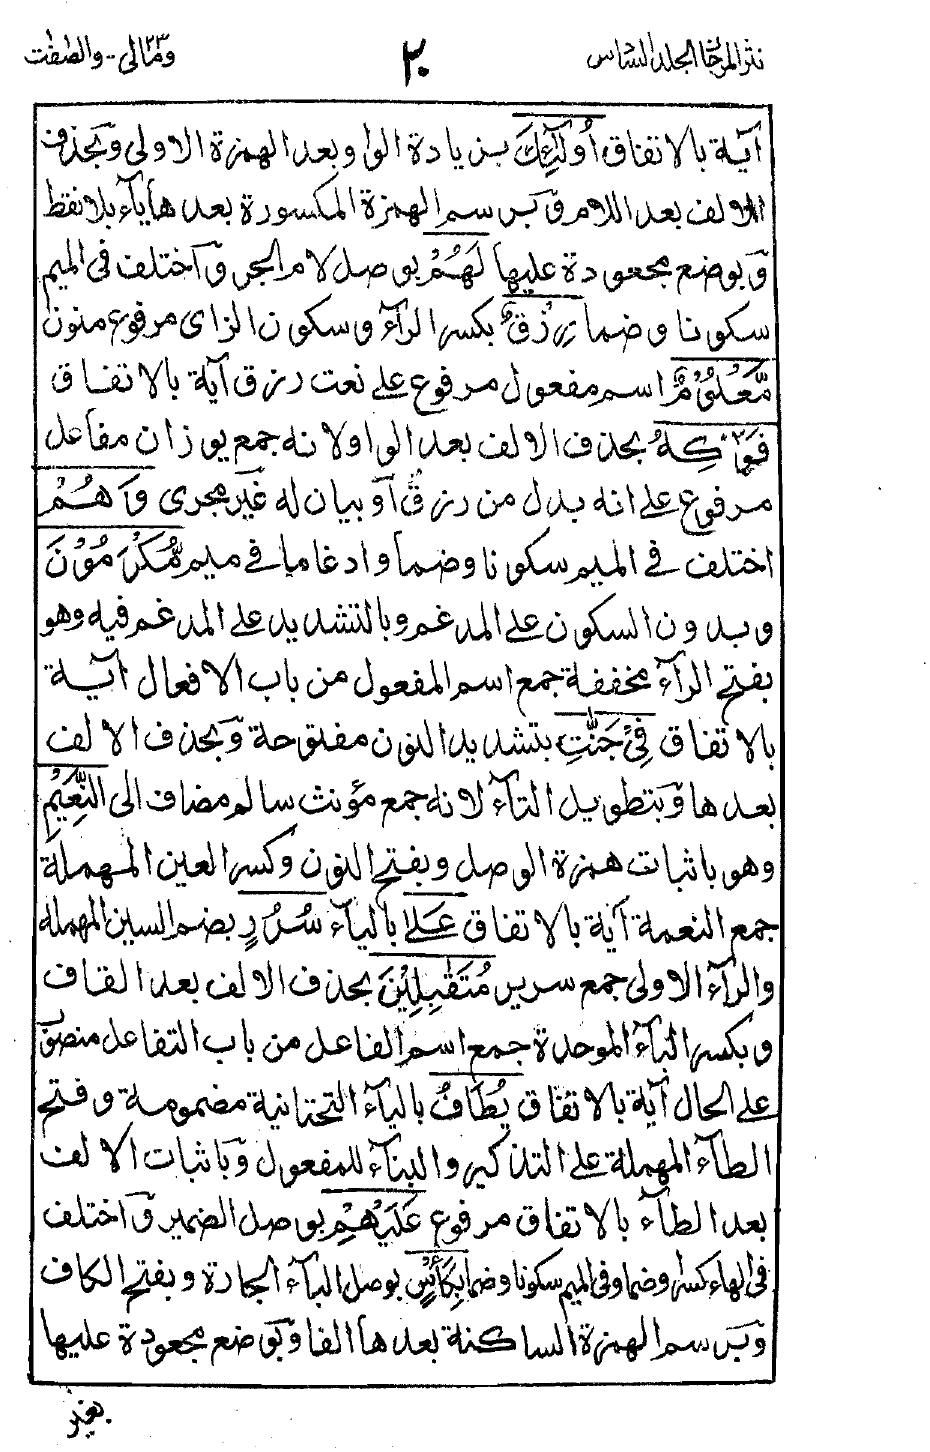 نثر المرجان المجلد السادس
٢٠
ومالی ٢٣ - والصّٰفّٰت
آية بالاتفاق اُولٰٓئِكَ بزيادة الواو بعد الهمزة الاولى وبحذف
الالف بعد اللام وبرسم الهمزة المكسورة بعدها ياء بلا نقط
وبوضع مجعودة عليها لَهُمْ بوصل لام الجر واختلف فى الميم
سكونا وضما رِزْقٌ بكسر الرآء وسكون الزاى مرفوع منون
مَّعْلُوْمٌ اسم مفعول مرفوع على نعت رزق آية بالاتفاق
فَوَاكِهُ بحذف الالف بعد الواو لانه جمع يوزان مفاعل
مرفوع على انه بدل من رزقٌ او بيان له غير مجرى وَهُمْ
اختلف فى الميم سكونا وضما وادغامها فى ميم مُّكْرَمُوْنَ
وبدون السكون على المدغم وبالتشديد على المدغم فيه وهو
بفتح الرآء مخففة جمع اسم المفعول من باب الافعال آية
بالاتفاق فِىْ جَنّٰتِ بتشديد النون مفتوحة وبحذف الالف
بعدها وبتطويل التآء لانه جمع مؤنث سالم مضاف الى النَّعِيْمِ
وهو باثبات همزة الوصل وبفتح النون وكسر العين المهملة
جمع النعمة آية بالاتفاق عَلٰى بالياء سُرُرٍ بضم السين المهملة
والرآء الاولى جمع سرير مُتَقٰبِلِيْنَ بحذف الالف بعد القاف
وبكسر البآء الموحدة جمع اسم الفاعل من باب التفاعل منصوب
على الحال آية بالاتفاق يُطَافُ بالياء التحتانية مضمومة وفتح
الطآء المهملة على التذكير والبنآء للمفعول وباثبات الالف
بعد الطآء بالاتفاق مرفوع عَلَيْهِمْ بوصل الضمير واختلف
فى الهاء كسرا وضما وفى الميم سكونا وضما بِكَأْسٍ بوصل البآء الجارة وبفتح الكاف
وبرسم الهمزة الساكنة بعدها الفا وبوضع مجعودة عليها
بغير